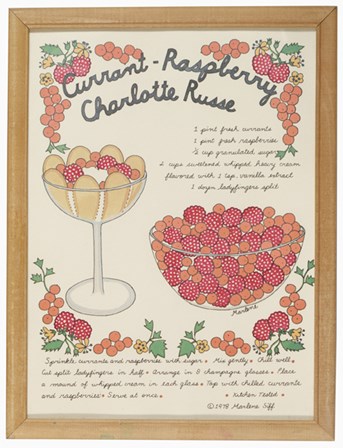 Currant-Raspberry
Charlotte Russe
1 pint fresh currants
1 pint fresh raspberries
½ cup granulated sugar
2 cups sweetened whipped heavy cream
flavored with 2 tsp. vanilla extract
1 dozen ladyfingers split
Marlene
Sprinkle currants and raspberries with sugar • Mix gently • Chill well •
Cut split ladyfingers in half • Arrange in 8 champagne glasses • Place
a mound of whipped cream in each glass • Top with chilled currants
and raspberries • Serve at once • Kitchen Tested •
© 1978 Marlene Siff